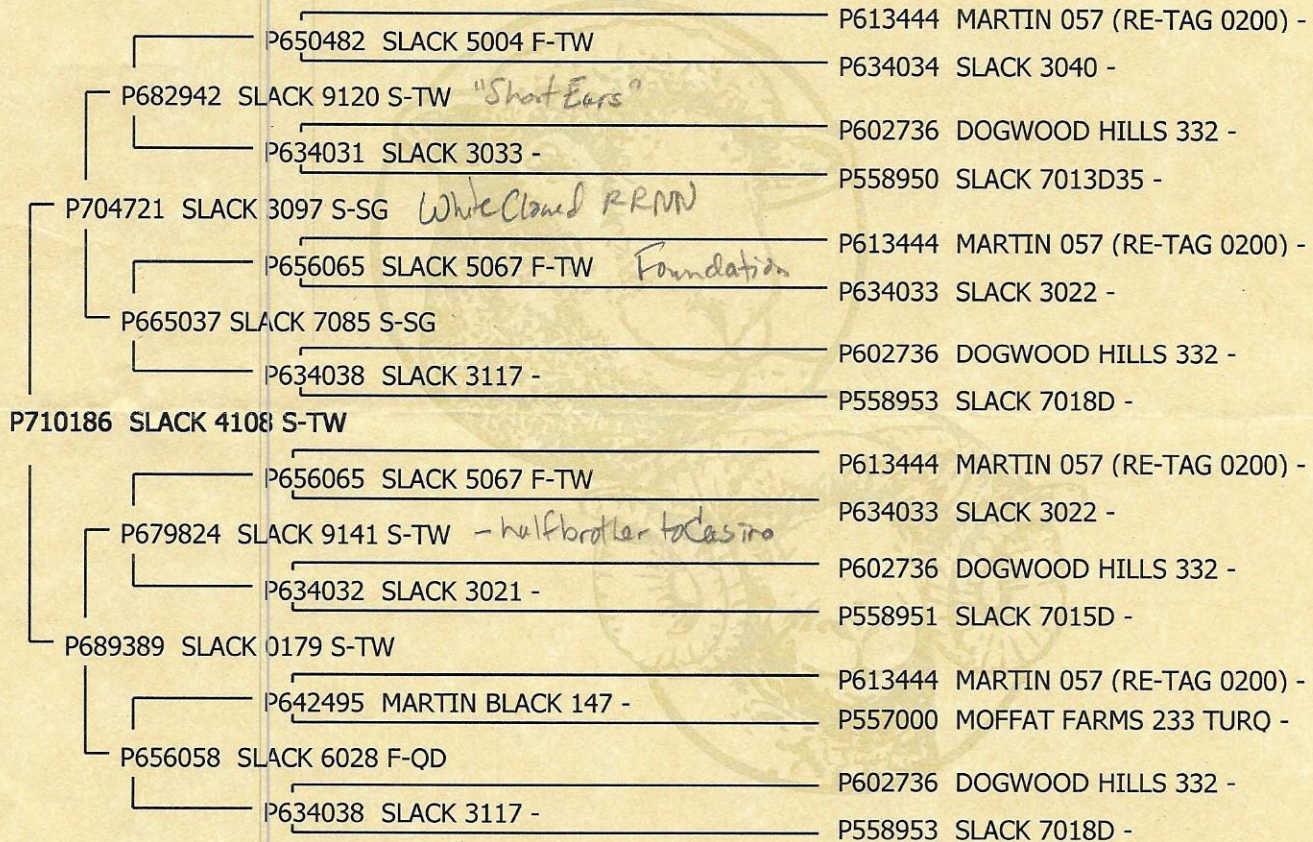 P613444 MARTIN 057 (RE-TAG 0200) -
P650482 SLACK 5004 F-TW
P634034 SLACK 3040 -
P682942 SLACK 9120 S-TW "Short Ears"
P602736 DOGWOOD HILLS 332 -
P634031 SLACK 3033 -
P558950 SLACK 7013D35 -
P704721 SLACK 3097 S-SG White Clawed RRNN
P613444 MARTIN 057 (RE-TAG 0200) -
P656065 SLACK 5067 F-TW Foundation
P634033 SLACK 3022 -
P665037 SLACK 7085 S-SG
P602736 DOGWOOD HILLS 332 -
P634038 SLACK 3117 -
P558953 SLACK 7018D -
P710186 SLACK 4108 S-TW
P613444 MARTIN 057 (RE-TAG 0200) -
P656065 SLACK 5067 F-TW
P634033 SLACK 3022 -
P679824 SLACK 9141 S-TW - half brother to Casino
P602736 DOGWOOD HILLS 332 -
P634032 SLACK 3021 -
P558951 SLACK 7015D -
P689389 SLACK 0179 S-TW
P613444 MARTIN 057 (RE-TAG 0200) -
P642495 MARTIN BLACK 147 -
P557000 MOFFAT FARMS 233 TURQ -
P656058 SLACK 6028 F-QD
P602736 DOGWOOD HILLS 332 -
P634038 SLACK 3117 -
P558953 SLACK 7018D -